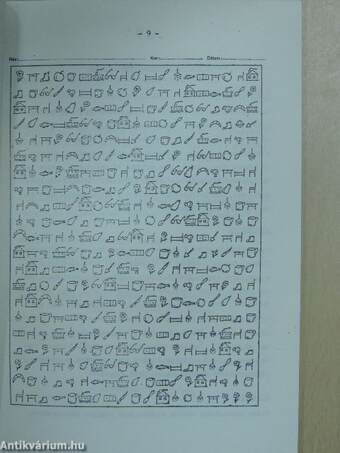 - 9 -
Név: Kor: Dátum:
Antikvárium.hu